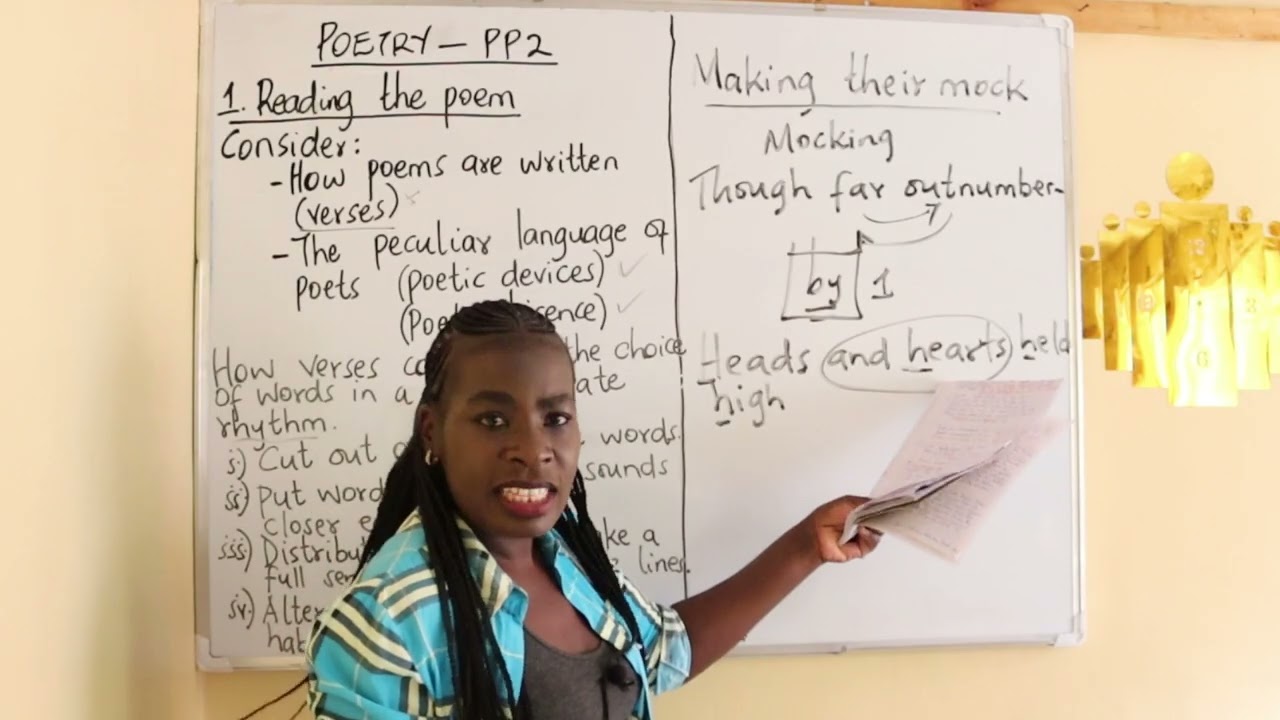 POETRY – PP2
1. Reading the poem
Consider:
- How poems are written
(verses)
- The peculiar language of
poets (poetic devices)
(Poe ence)
How verses the choice
of words in a ate
rhythm.
i) Cut out words.
ii) Put word sounds
closer
iii) Distribu ke a
full sen lines.
iv) Alte
Making their mock
Mocking
Though far outnumber-
by 1
Heads and hearts held
high